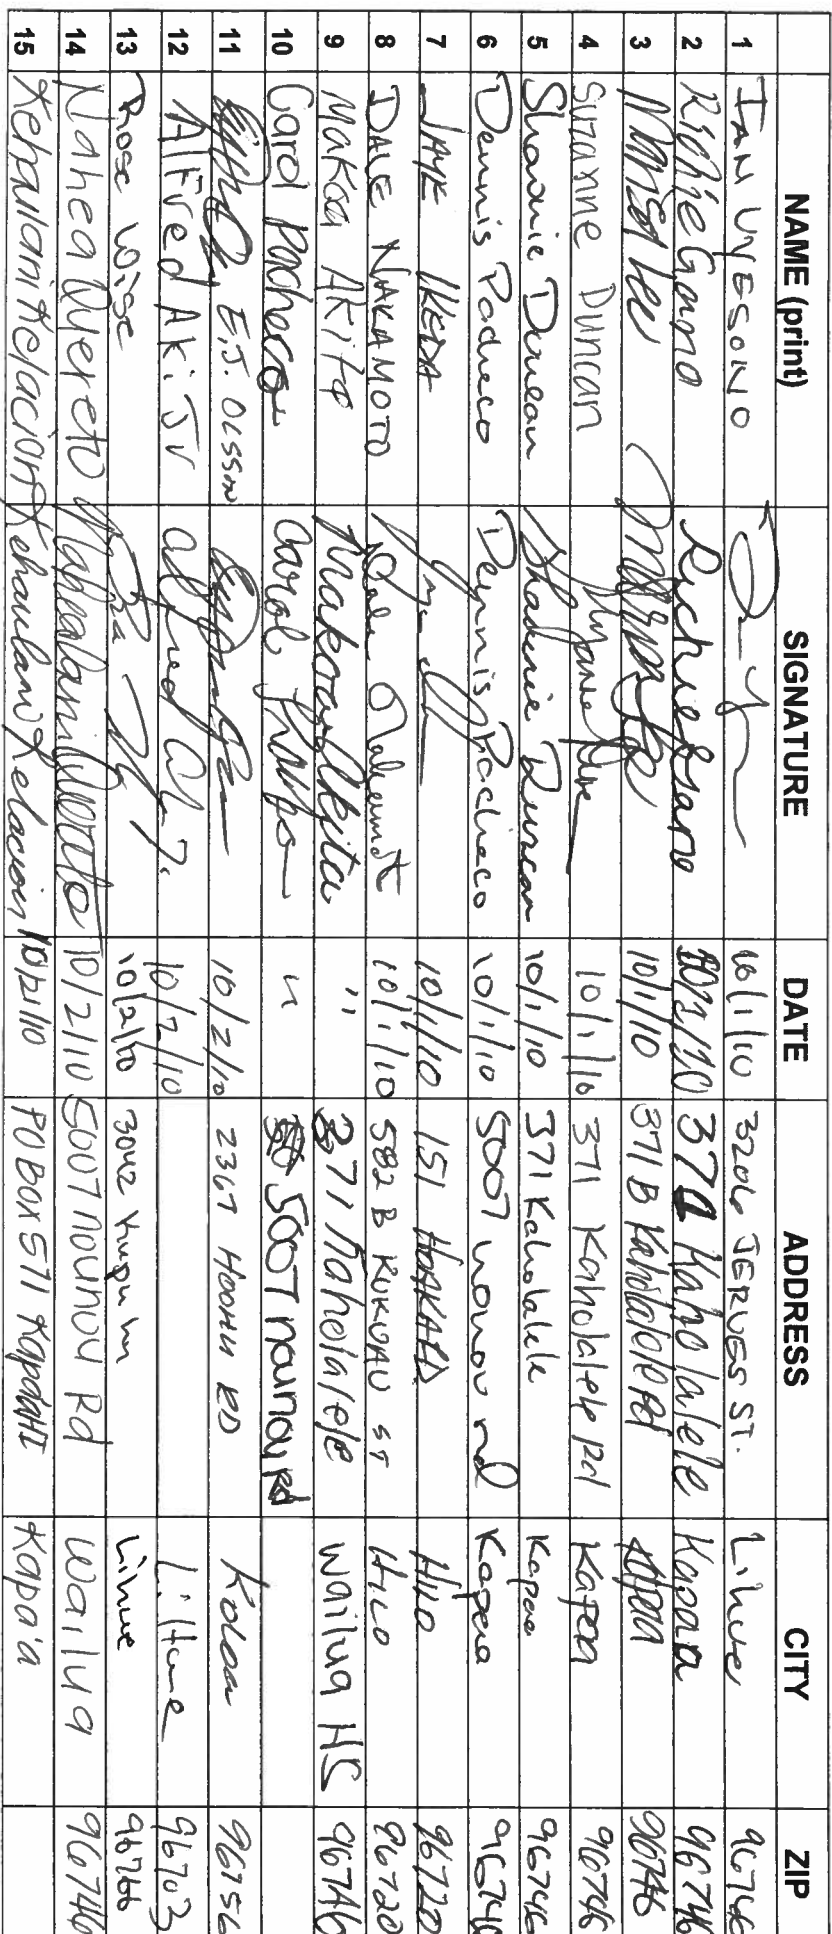 NAME (print) SIGNATURE DATE ADDRESS CITY ZIP
1 IAN UYESONO 10/1/10 3206 JERVES ST. Lihue 96746
2 Richie Gano Richie Gano 37 Kaholalele Kapaa 96746
3 Lee 10/1/10 371 B Kaholalele Rd Kapaa 96746
4 Suzanne Duncan 10/1/10 371 Kaholalele Rd Kapaa 96746
5 Duncan Duncan 10/1/10 371 Kaholalele Kapaa 96746
6 Dennis Pacheco Dennis Pacheco 10/1/10 5007 nounou rd Kapaa 96746
7 JAYE IKEDA 10/1/10 151 HILO 96720
8 DALE NAKAMOTO Dale 10/1/10 582 B KUKUAU ST HILO 96720
9 Makoa Akita Makoa Akita " 371 Kaholalele Wailua HS 96746
10 Carol Pacheco Carol " 5007 nounou rd
11 E.J. OLSSON 10/2/10 2367 HOOHU RD Koloa 96756
12 Alfred Aki Jr Alfred 10/2/10 Lihue 96703
13 Rose Wise 10/2/10 3042 Lihue 96766
14 Nahea Quereto 10/2/10 5007 nounou Rd Wailua 96746
15 Kehaulani Relacion Kehaulani Relacion 10/2/10 PO BOX 511 Kapaa HI Kapa'a